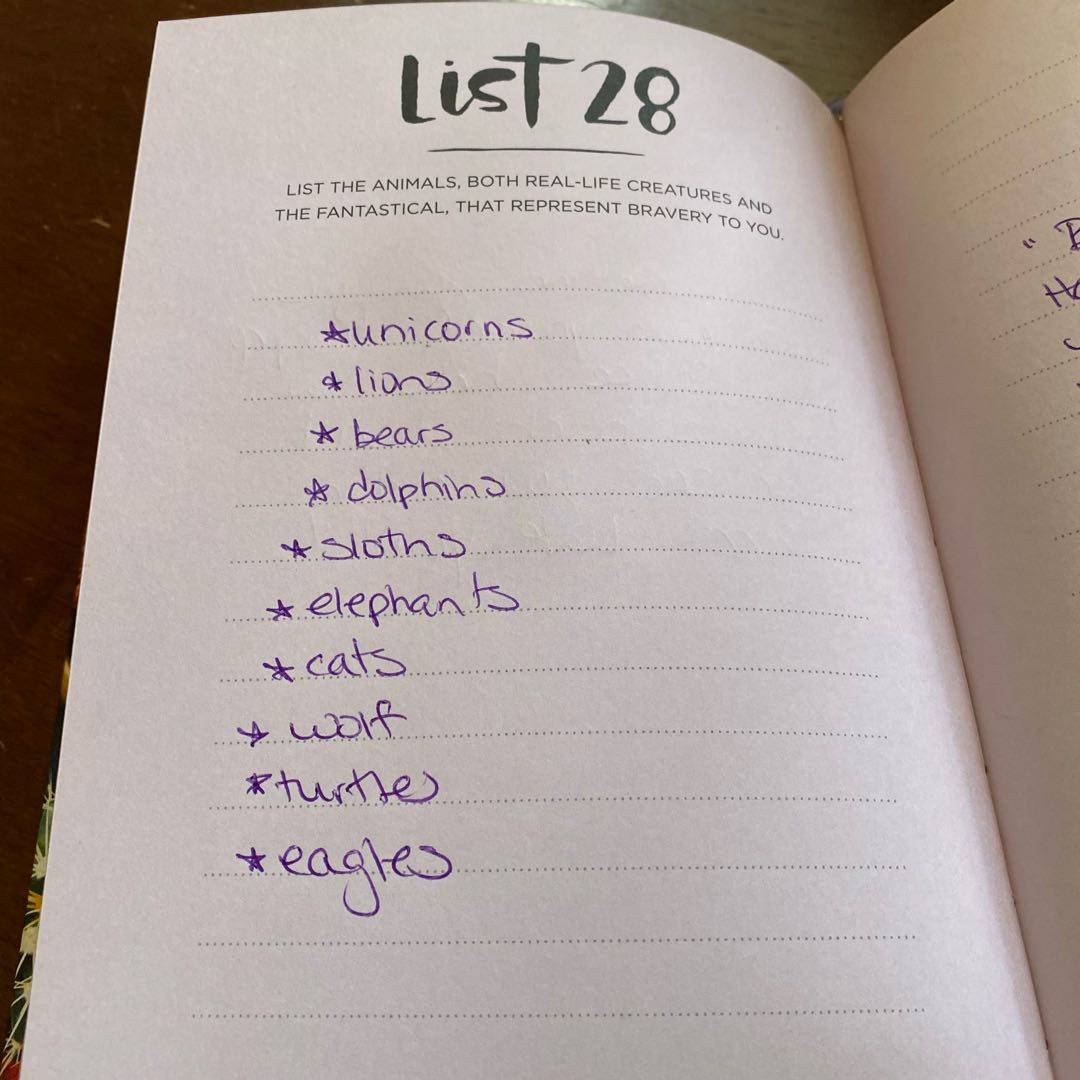 List 28
LIST THE ANIMALS, BOTH REAL-LIFE CREATURES AND
THE FANTASTICAL, THAT REPRESENT BRAVERY TO YOU.
*unicorns
* lions
* bears
* dolphins
* sloths
* elephants
* cats
* wolf
* turtles
* eagles